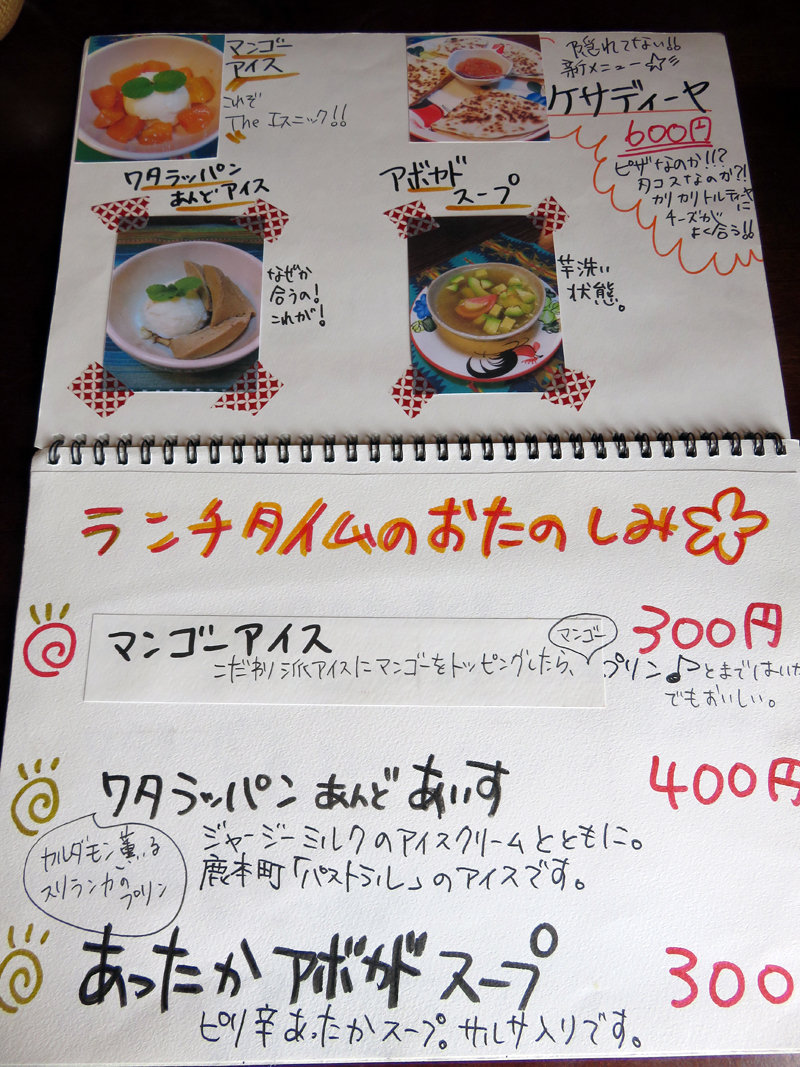 マンゴー
アイス
これぞ
The エスニック!!
隠れてない!!
新メニュー☆
ケサディーヤ
600円
ピザなのか!!?
タコスなのか?!
カリカリトルティーヤに
チーズが
よく合う!!
ワタラッパン
あんどアイス
なぜか
合うの!
これが!
アボカド
スープ
芋洗い
状態。
ランチタイムのおたのしみ
マンゴーアイス
300円
こだわり派アイスにマンゴーをトッピングしたら、
マンゴー
プリン♪とまではいか
でもおいしい。
ワタラッパンあんどあいす
400円
カルダモン薫る
スリランカの
プリン
ジャージーミルクのアイスクリームとともに。
鹿本町「パストラル」のアイスです。
あったかアボガドスープ
300
ピリ辛あったかスープ。サルサ入りです。